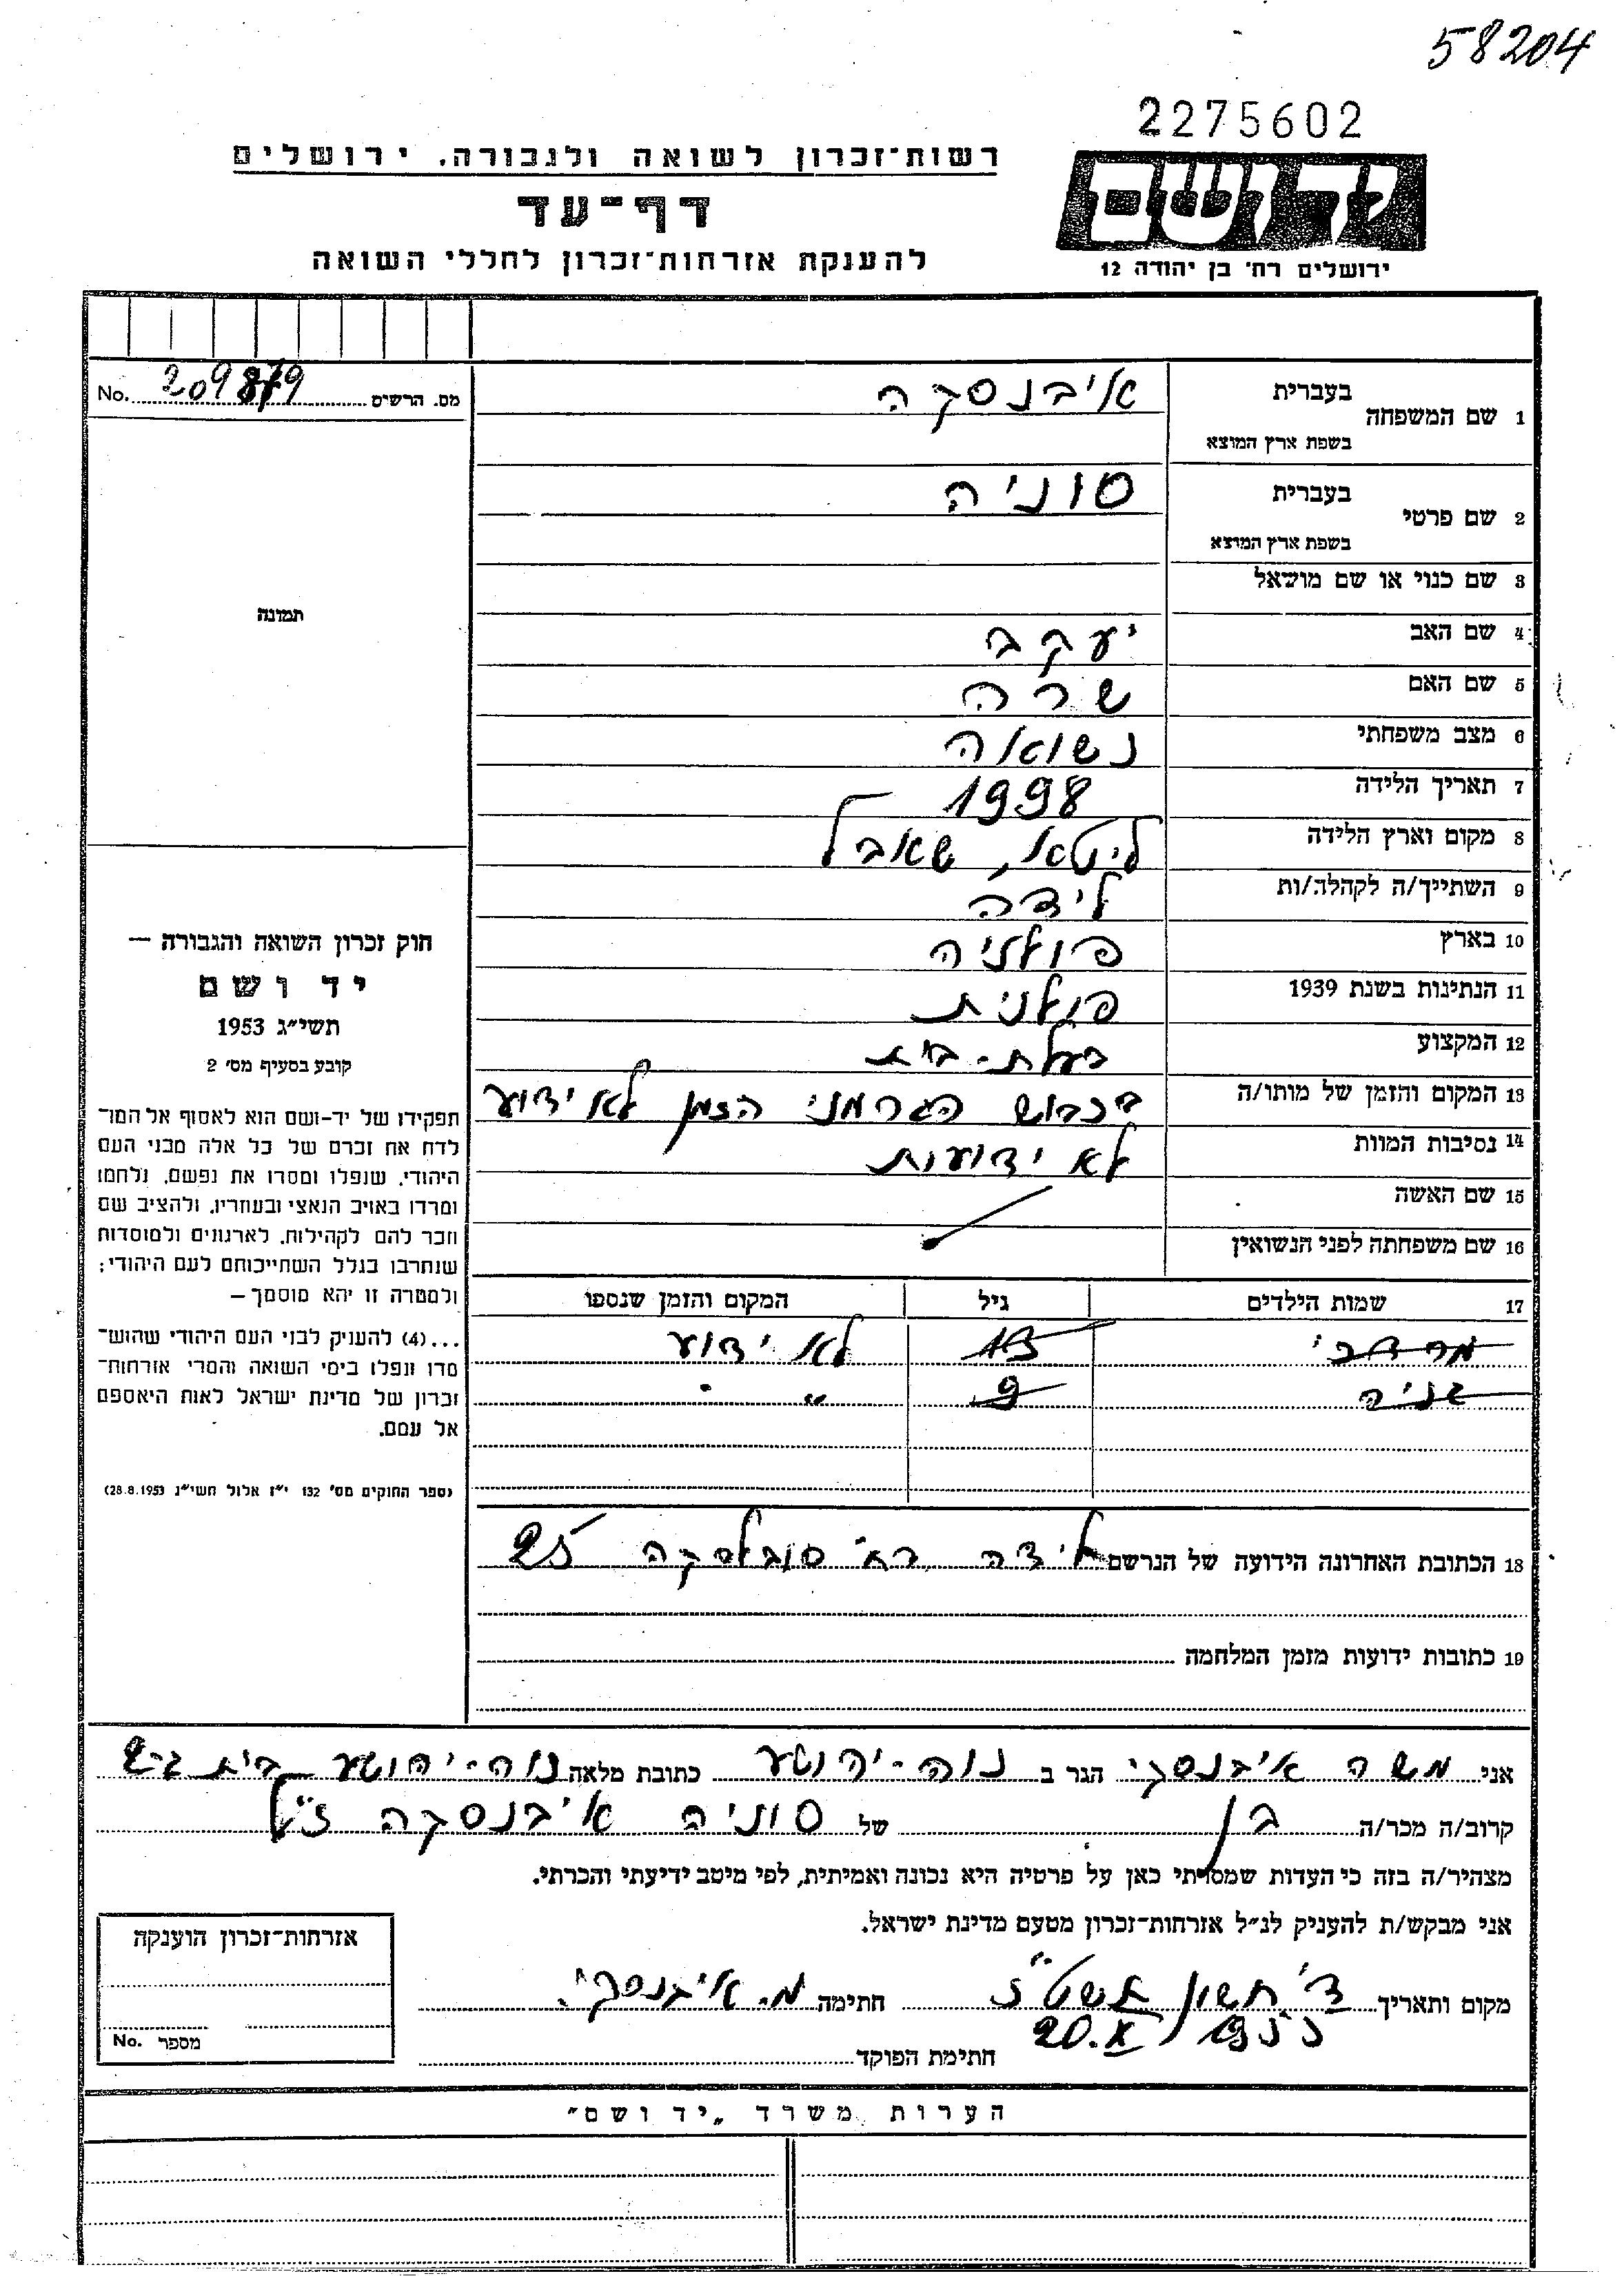 58204
2275602
רשות־זכרון לשואה ולגבורה. ירושלים
דף־עד
להענקת אזרחות־זכרון לחללי השואה
יד ושם
ירושלים רח' בן יהודה 12
מס. הרשים No.
1 שם המשפחה בעברית איבנסקה
בשפת ארץ המוצא
2 שם פרטי בעברית סוניה
בשפת ארץ המוצא
3 שם כנוי או שם מושאל
תמונה
4 שם האב יעקב
5 שם האם שרה
6 מצב משפחתי נשואה
7 תאריך הלידה 1998
8 מקום וארץ הלידה ליטא, שאבל
9 השתייך/ה לקהלה/ות לידה
10 בארץ פולניה
11 הנתינות בשנת 1939 פולנית
12 המקצוע בעלת-בית
13 המקום והזמן של מותו/ה בכבוש הגרמני הזמן לא ידוע
14 נסיבות המוות לא ידועות
15 שם האשה
16 שם משפחתה לפני הנשואין
חוק זכרון השואה והגבורה —
יד ושם
תשי״ג 1953
קובע בסעיף מס' 2
תפקידו של יד-ושם הוא לאסוף אל המו־
לדת את זכרם של כל אלה מבני העם
היהודי, שנפלו ומסרו את נפשם, נלחמו
ומרדו באויב הנאצי ובעוזריו, ולהציב שם
וזכר להם לקהילות, לארגונים ולמוסדות
שנחרבו בגלל השתייכותם לעם היהודי;
ולמטרה זו יהא מוסמך —
...(4) להעניק לבני העם היהודי שהוש־
מדו ונפלו בימי השואה והמרי אזרחות־
זכרון של מדינת ישראל לאות היאספם
אל עמם.
(ספר החוקים מס' 132 י״ז אלול תשי״ג 28.8.1953)
17 שמות הילדים גיל המקום והזמן שנספו
מרדכי 13 לא ידוע
9 " "
18 הכתובת האחרונה הידועה של הנרשם לידה רח' סובלסקה 25
19 כתובות ידועות מזמן המלחמה
אני משה איבנסקי הגר ב נוה-יהושע כתובת מלאה נוה-יהושע בית
קרוב/ה מכר/ה בן של סוניה איבנסקה ז"ל
מצהיר/ה בזה כי העדות שמסרתי כאן על פרטיה היא נכונה ואמיתית, לפי מיטב ידיעתי והכרתי.
אני מבקש/ת להעניק לנ״ל אזרחות־זכרון מטעם מדינת ישראל.
מקום ותאריך ד' חשון תשט"ז חתימה מ. איבנסקי
20.X 1955
חתימת הפוקד
אזרחות־זכרון הוענקה
מספר No.
הערות משרד „יד ושם״